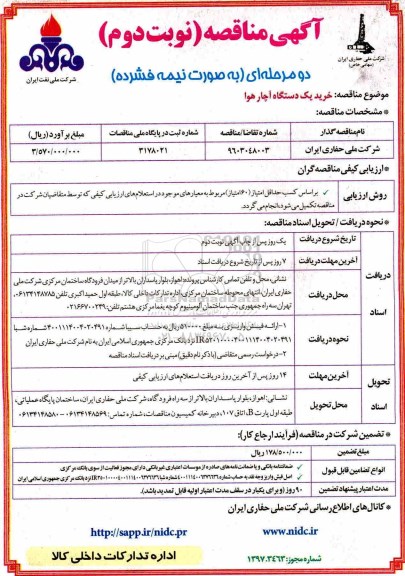 آگهی مناقصه (نوبت دوم)
دو مرحله‌ای (به صورت نیمه فشرده)
شرکت ملی حفاری ایران
(سهامی خاص)
شرکت ملی نفت ایران
موضوع مناقصه: خرید یک دستگاه آچار هوا
* مشخصات مناقصه:
نام مناقصه گذار شماره تقاضا/مناقصه شماره ثبت در پایگاه ملی مناقصات مبلغ برآورد (ریال)
شرکت ملی حفاری ایران ۹۶۰۳۰۴۸۰۰۳ ۳۱۷۸۰۲۱ ۳/۵۷۰/۰۰۰/۰۰۰
* ارزیابی کیفی مناقصه گران
روش ارزیابی
✓ بر اساس کسب حداقل امتیاز (۶۰ امتیاز) مربوط به معیارهای موجود در استعلام‌های ارزیابی کیفی که توسط متقاضیان شرکت در
مناقصه تکمیل می‌شود، انجام می‌گردد.
* نحوه دریافت / تحویل اسناد مناقصه:
دریافت اسناد
تاریخ شروع دریافت یک روز پس از چاپ آگهی نوبت دوم
آخرین مهلت دریافت ۷ روز پس از تاریخ شروع دریافت اسناد
محل دریافت
نشانی، محل و تلفن تماس کارشناس پرونده: اهواز، بلوار پاسداران بالاتر از میدان فرودگاه ساختمان مرکزی شرکت ملی
حفاری ایران، انتهای محوطه ساختمان مرکزی، اداره تدارکات داخلی کالا، طبقه اول حمید اکبری تلفن: ۰۶۱۳۴۱۴۸۷۸۵
تهران سه راه جمهوری جنب ساختمان آلومینیوم کوچه یغما مرکزی هشتم تلفن: ۰۲۱۶۶۷۰۰۲۴۹
نحوه دریافت
۱- ارائه فیش واریزی به مبلغ ۵۱۰/۰۰۰ ریال به حساب سیبا شماره ۴۰۰۱۱۱۴۰۰۴۰۲۰۴۹۱ شماره شبا
نزد بانک مرکزی جمهوری اسلامی ایران به نام شرکت ملی حفاری ایران
۲- درخواست رسمی متقاضی (با ذکر نام دقیق) مبنی بر دریافت اسناد مناقصه
تحویل اسناد
آخرین مهلت ۱۴ روز پس از آخرین روز دریافت استعلام‌های ارزیابی کیفی
محل تحویل
نشانی: اهواز، بلوار پاسداران بالاتر از سه راه فرودگاه، شرکت ملی حفاری ایران، ساختمان پایگاه عملیاتی،
طبقه اول پارت B، اتاق ۱۰۷، دبیرخانه کمیسیون مناقصات، شماره تماس: ۰۶۱۳۴۱۴۸۵۶۹ - ۰۶۱۳۴۱۴۸۵۸۰
* تضمین شرکت در مناقصه (فرآیند ارجاع کار):
مبلغ تضمین ۱۷۸/۵۰۰/۰۰۰ ریال
انواع تضامین قابل قبول
ضمانتنامه بانکی و یا ضمانت نامه‌های صادره از موسسات اعتباری غیربانکی دارای مجوز فعالیت از سوی بانک مرکزی
اصل فیش واریز وجه نقد به حساب شماره نزد بانک مرکزی جمهوری اسلامی ایران
مدت اعتبار پیشنهاد تضمین ۹۰ روز (و برای یکبار در سقف مدت اعتبار اولیه قابل تمدید باشد).
* کانال‌های اطلاع رسانی شرکت ملی حفاری ایران
www.nidc.ir
http://sapp.ir/nidc.pr
شماره مجوز: ۱۳۹۷.۳۴۶۳
اداره تدارکات داخلی کالا